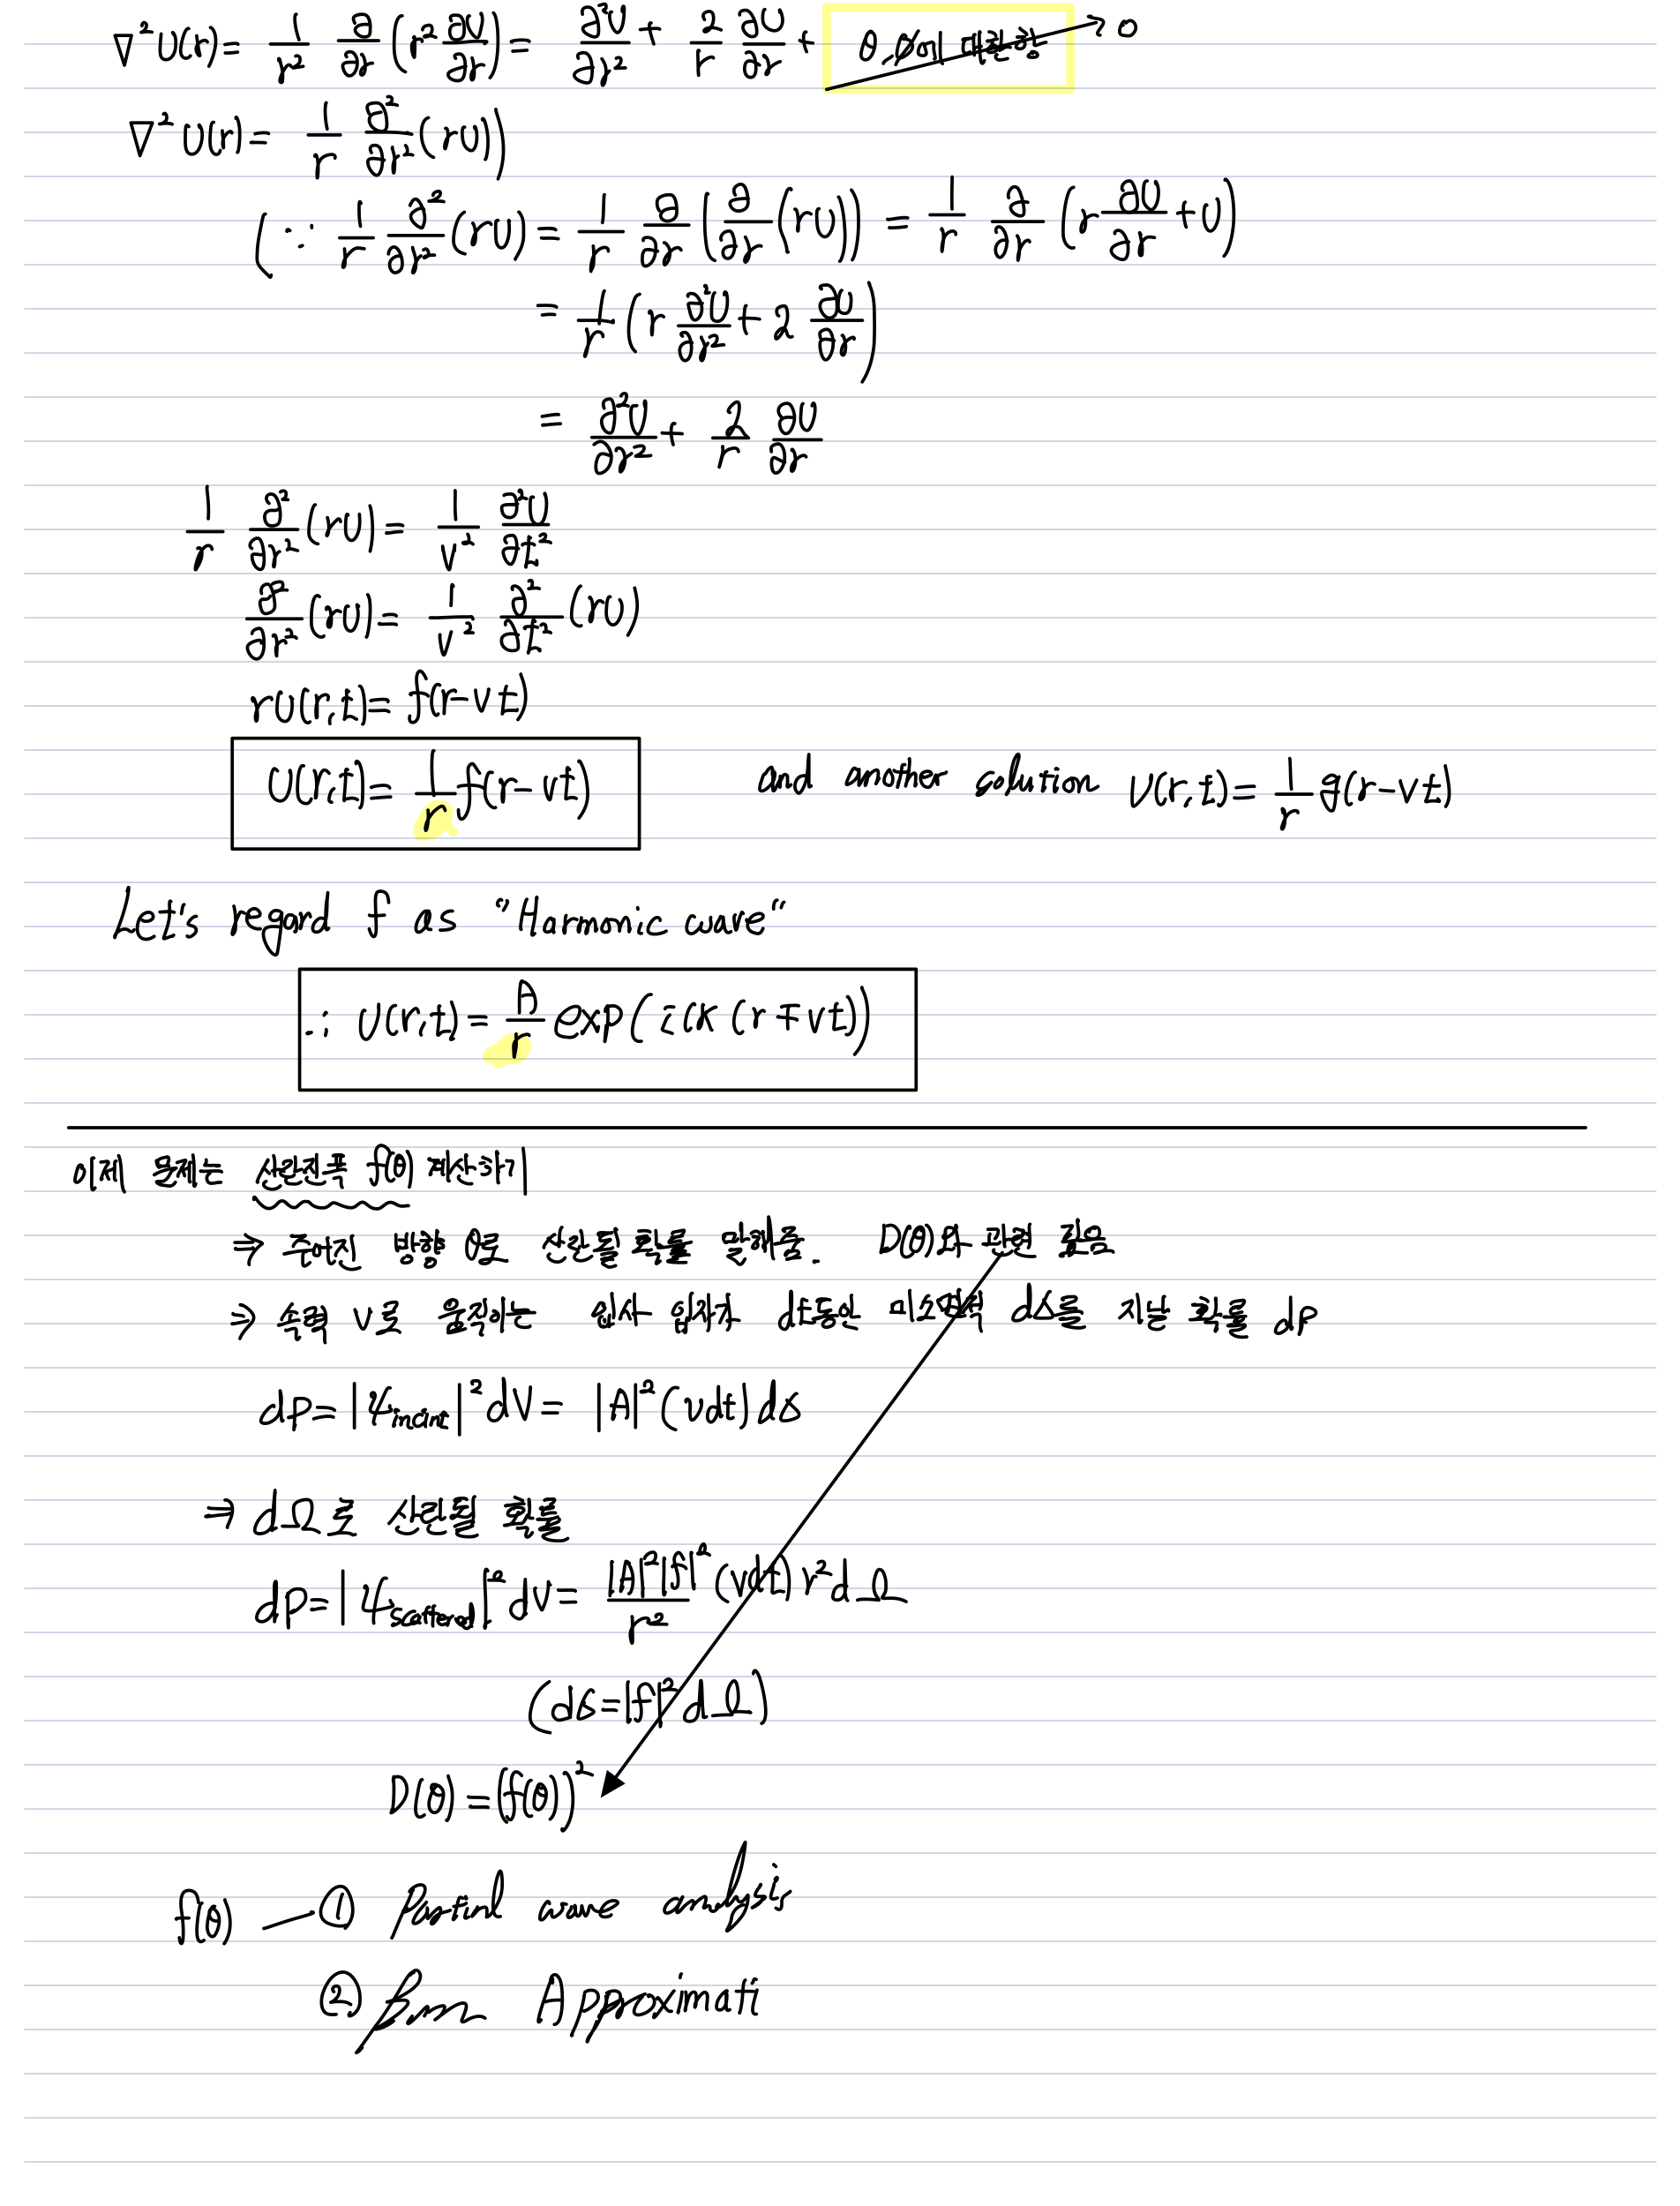 ∇²U(r)= 1/r² ∂/∂r (r² ∂U/∂r) = ∂²U/∂r² + 2/r ∂U/∂r + θ,ϕ에 대한 항 → 0
∇²U(r)= 1/r ∂²/∂r² (rU)
(∵ 1/r ∂²/∂r² (rU) = 1/r ∂/∂r (∂/∂r (rU)) = 1/r ∂/∂r (r ∂U/∂r + U)
= 1/r (r ∂²U/∂r² + 2 ∂U/∂r)
= ∂²U/∂r² + 2/r ∂U/∂r
1/r ∂²/∂r² (rU) = 1/v² ∂²U/∂t²
∂²/∂r² (rU) = 1/v² ∂²/∂t² (rU)
rU(r,t)= f(r-vt)
U(r,t)= 1/r f(r-vt) and another solution U(r,t)= 1/r g(r-vt)
Let's regard f as "Harmonic wave"
∴ U(r,t)= A/r exp(i(k(r∓vt))
이제 문제는 산란진폭 f(θ) 계산하기
⇒ 주어진 방향 θ로 산란될 확률 말해줌. D(θ)와 관련 깊음
⇒ 속력 v로 움직이는 입사 입자가 dt동안 미소면적 dσ를 지날 확률 dP
dP= |ψincint|² dV= |A|² (vdt) dσ
⇒ dΩ로 산란될 확률
dP= |ψscattered|² dV= |A|²|f|²/r² (vdt) r² dΩ
(dσ=|f|² dΩ)
D(θ) = (f(θ))²
f(θ) — ① Partial wave analysis
② Born Approximati